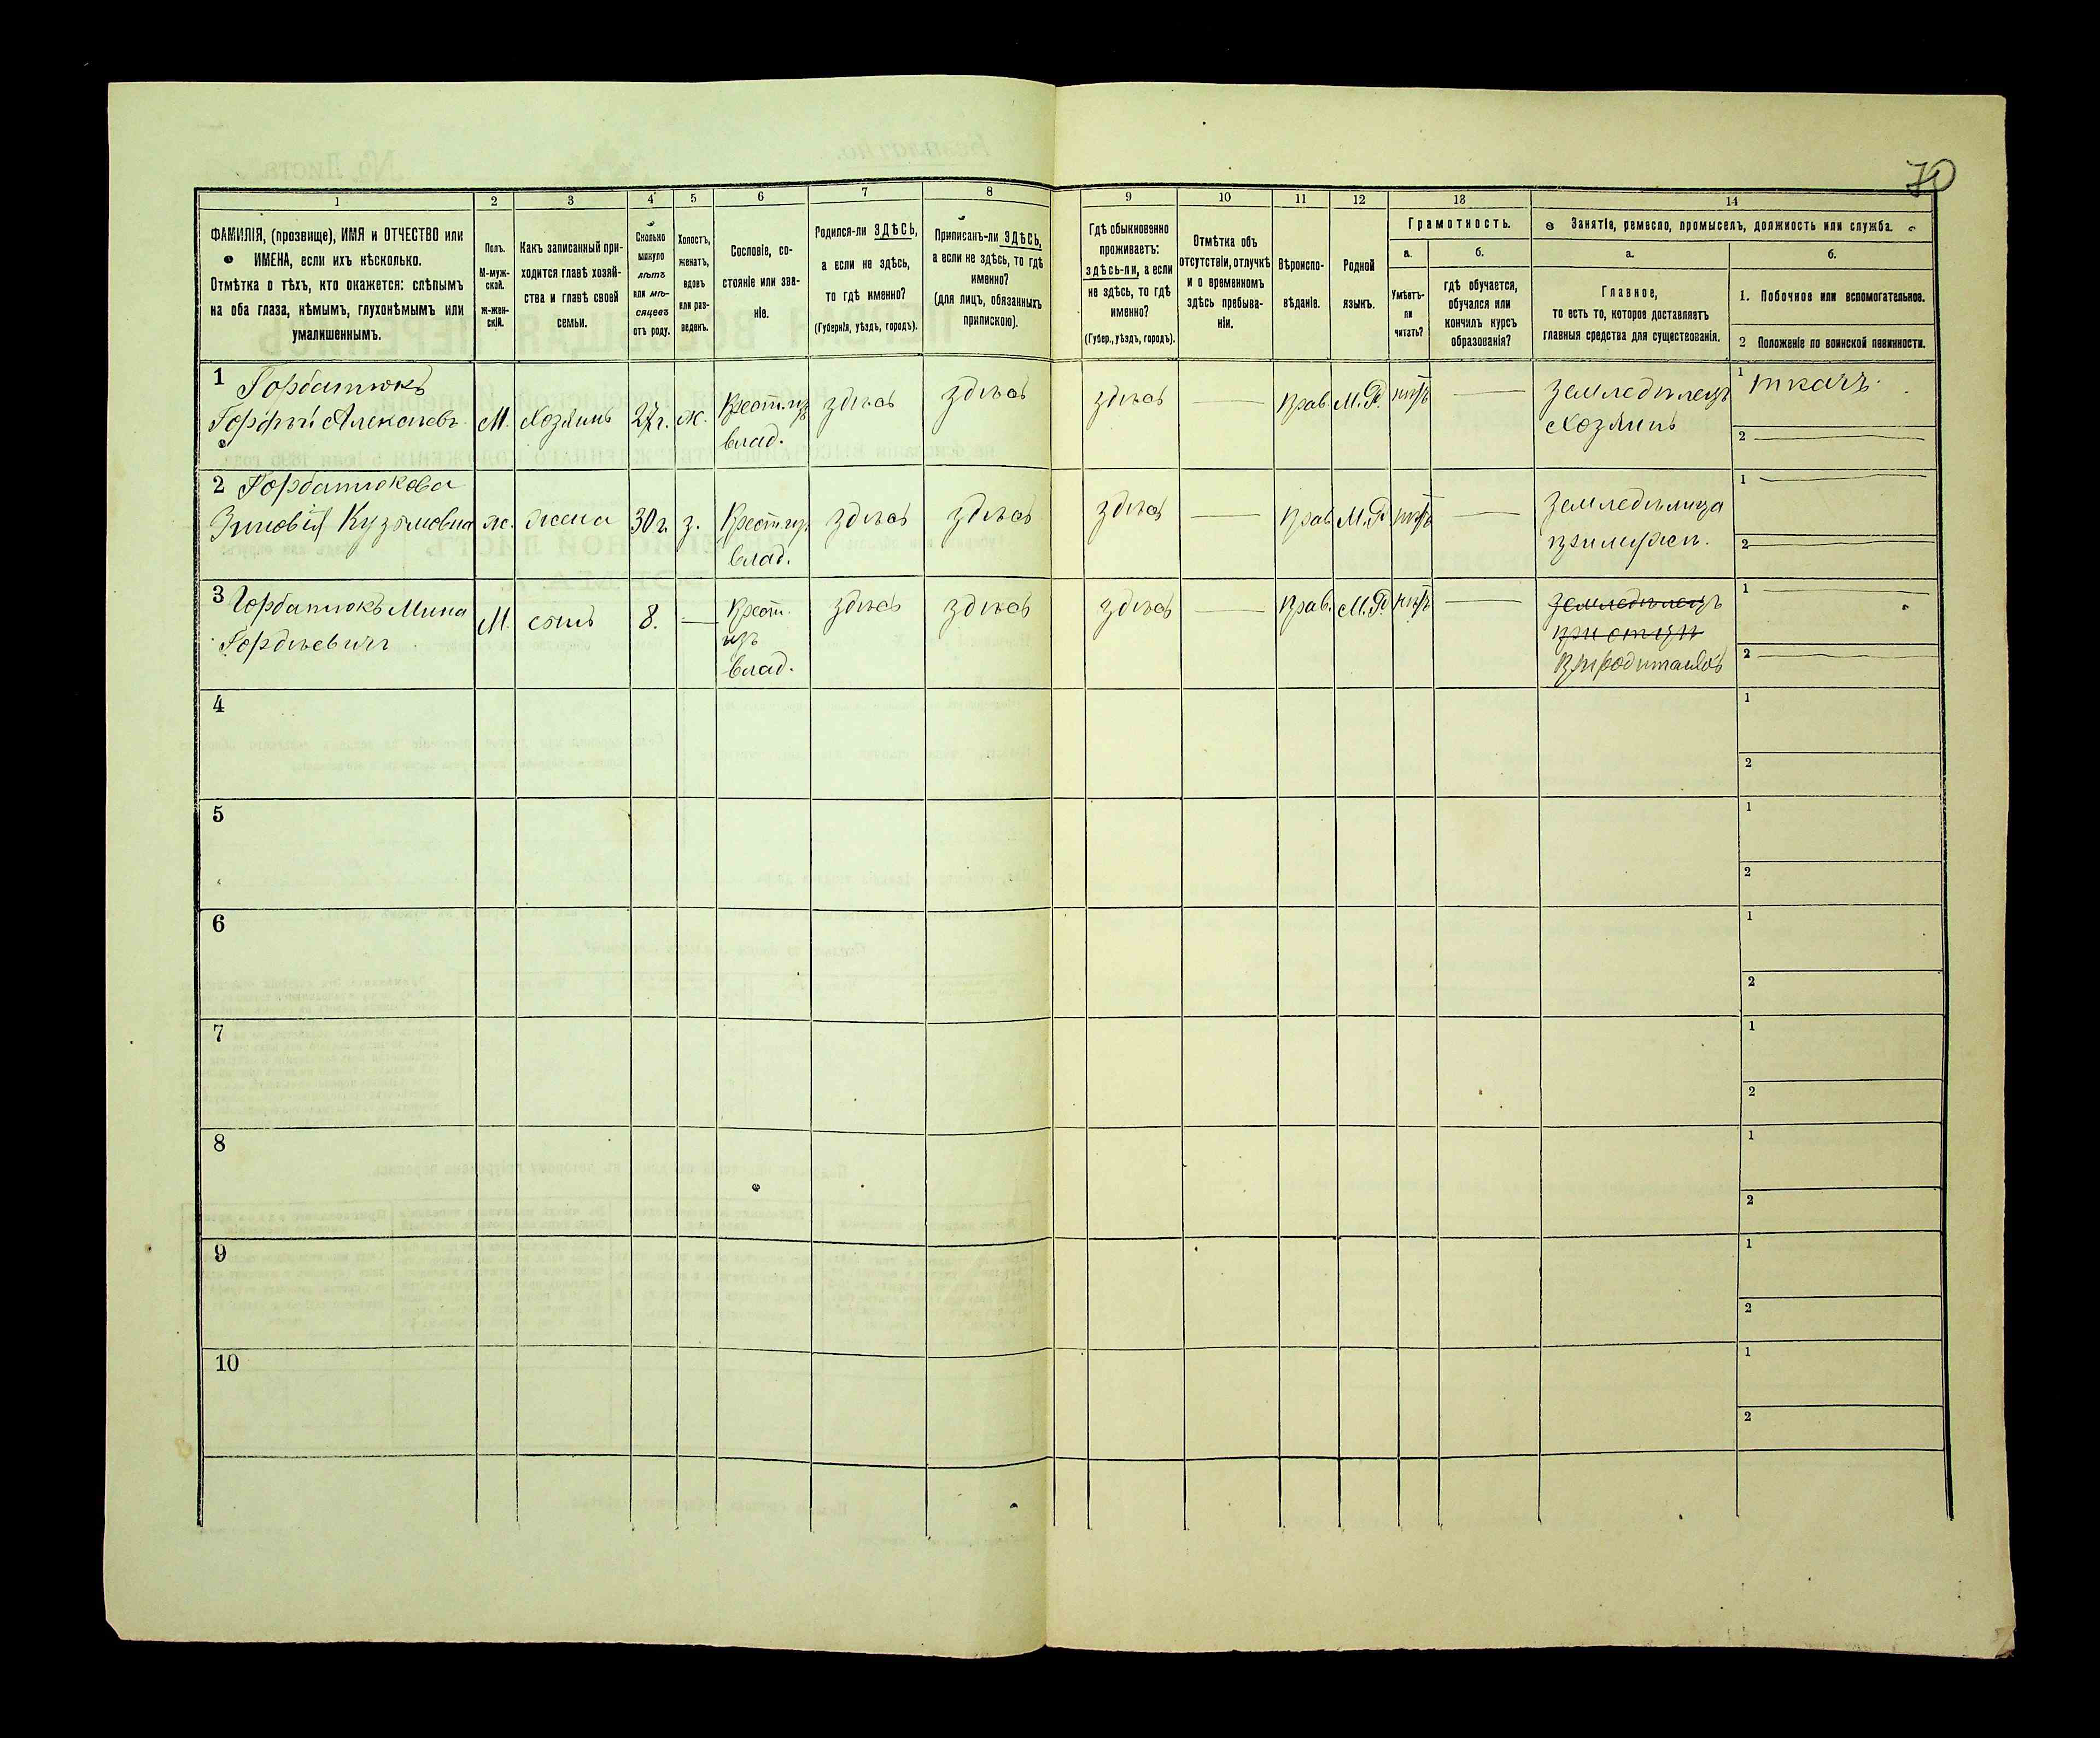 70
1
2
3
4
5
6
7
8
9
10
11
12
13
14
ФАМИЛІЯ, (прозвище), ИМЯ и ОТЧЕСТВО или
ИМЕНА, если ихъ нѣсколько.
Отмѣтка о тѣхъ, кто окажется: слѣпымъ
на оба глаза, нѣмымъ, глухонѣмымъ или
умалишеннымъ.
Полъ.
М-муж-
ской.
ж-жен-
скій.
Какъ записанный при-
ходится главѣ хозяй-
ства и главѣ своей
семьи.
Сколько
минуло
лѣтъ
или мѣ-
сяцевъ
отъ роду.
Холостъ,
женатъ,
вдовъ
или раз-
веденъ.
Сословіе, со-
стояніе или зва-
ніе.
Родился-ли ЗДѢСЬ,
а если не здѣсь,
то гдѣ именно?
(Губернія, уѣздъ, городъ).
Приписанъ-ли ЗДѢСЬ,
а если не здѣсь, то гдѣ
именно?
(для лицъ, обязанныхъ
припискою).
Гдѣ обыкновенно
проживаетъ:
здѣсь-ли, а если
не здѣсь, то гдѣ
именно?
(Губер., уѣздъ, городъ).
Отмѣтка объ
отсутствіи, отлучкѣ
и о временномъ
здѣсь пребыва-
ніи.
Вѣроиспо-
вѣданіе.
Родной
языкъ.
Грамотность.
а.
Умѣетъ-
ли
читать?
б.
гдѣ обучается,
обучался или
кончилъ курсъ
образованія?
Занятія, ремесло, промыселъ, должность или служба.
а.
Главное,
то есть то, которое доставляетъ
главныя средства для существованія.
б.
1. Побочное или вспомогательное.
2 Положеніе по воинской повинности.
1 Горбатюкъ
М.
Хозяинъ
27 г.
ж.
Крест. изъ
влад.
здѣсь
здѣсь
здѣсь
прав.
М. Р.
нѣтъ
земледѣлецъ
Хозяинъ
1 ткачъ.
2
2 Горбатюкова
Зиновія Кузьмовна
ж.
жена
30 г.
з.
Крест. изъ
влад.
здѣсь
здѣсь
здѣсь
прав.
М. Р.
нѣтъ
земледѣлица
при мужѣ.
1
2
3 Горбатюкъ Мина
Гордѣевичъ
М.
сынъ
8.
Крест.
изъ
влад.
здѣсь
здѣсь
здѣсь
прав.
М. Р.
нѣтъ
земледѣлецъ
при отцѣ
при родителяхъ
1
2
4
1
2
5
1
2
6
1
2
7
1
2
8
1
2
9
1
2
10
1
2